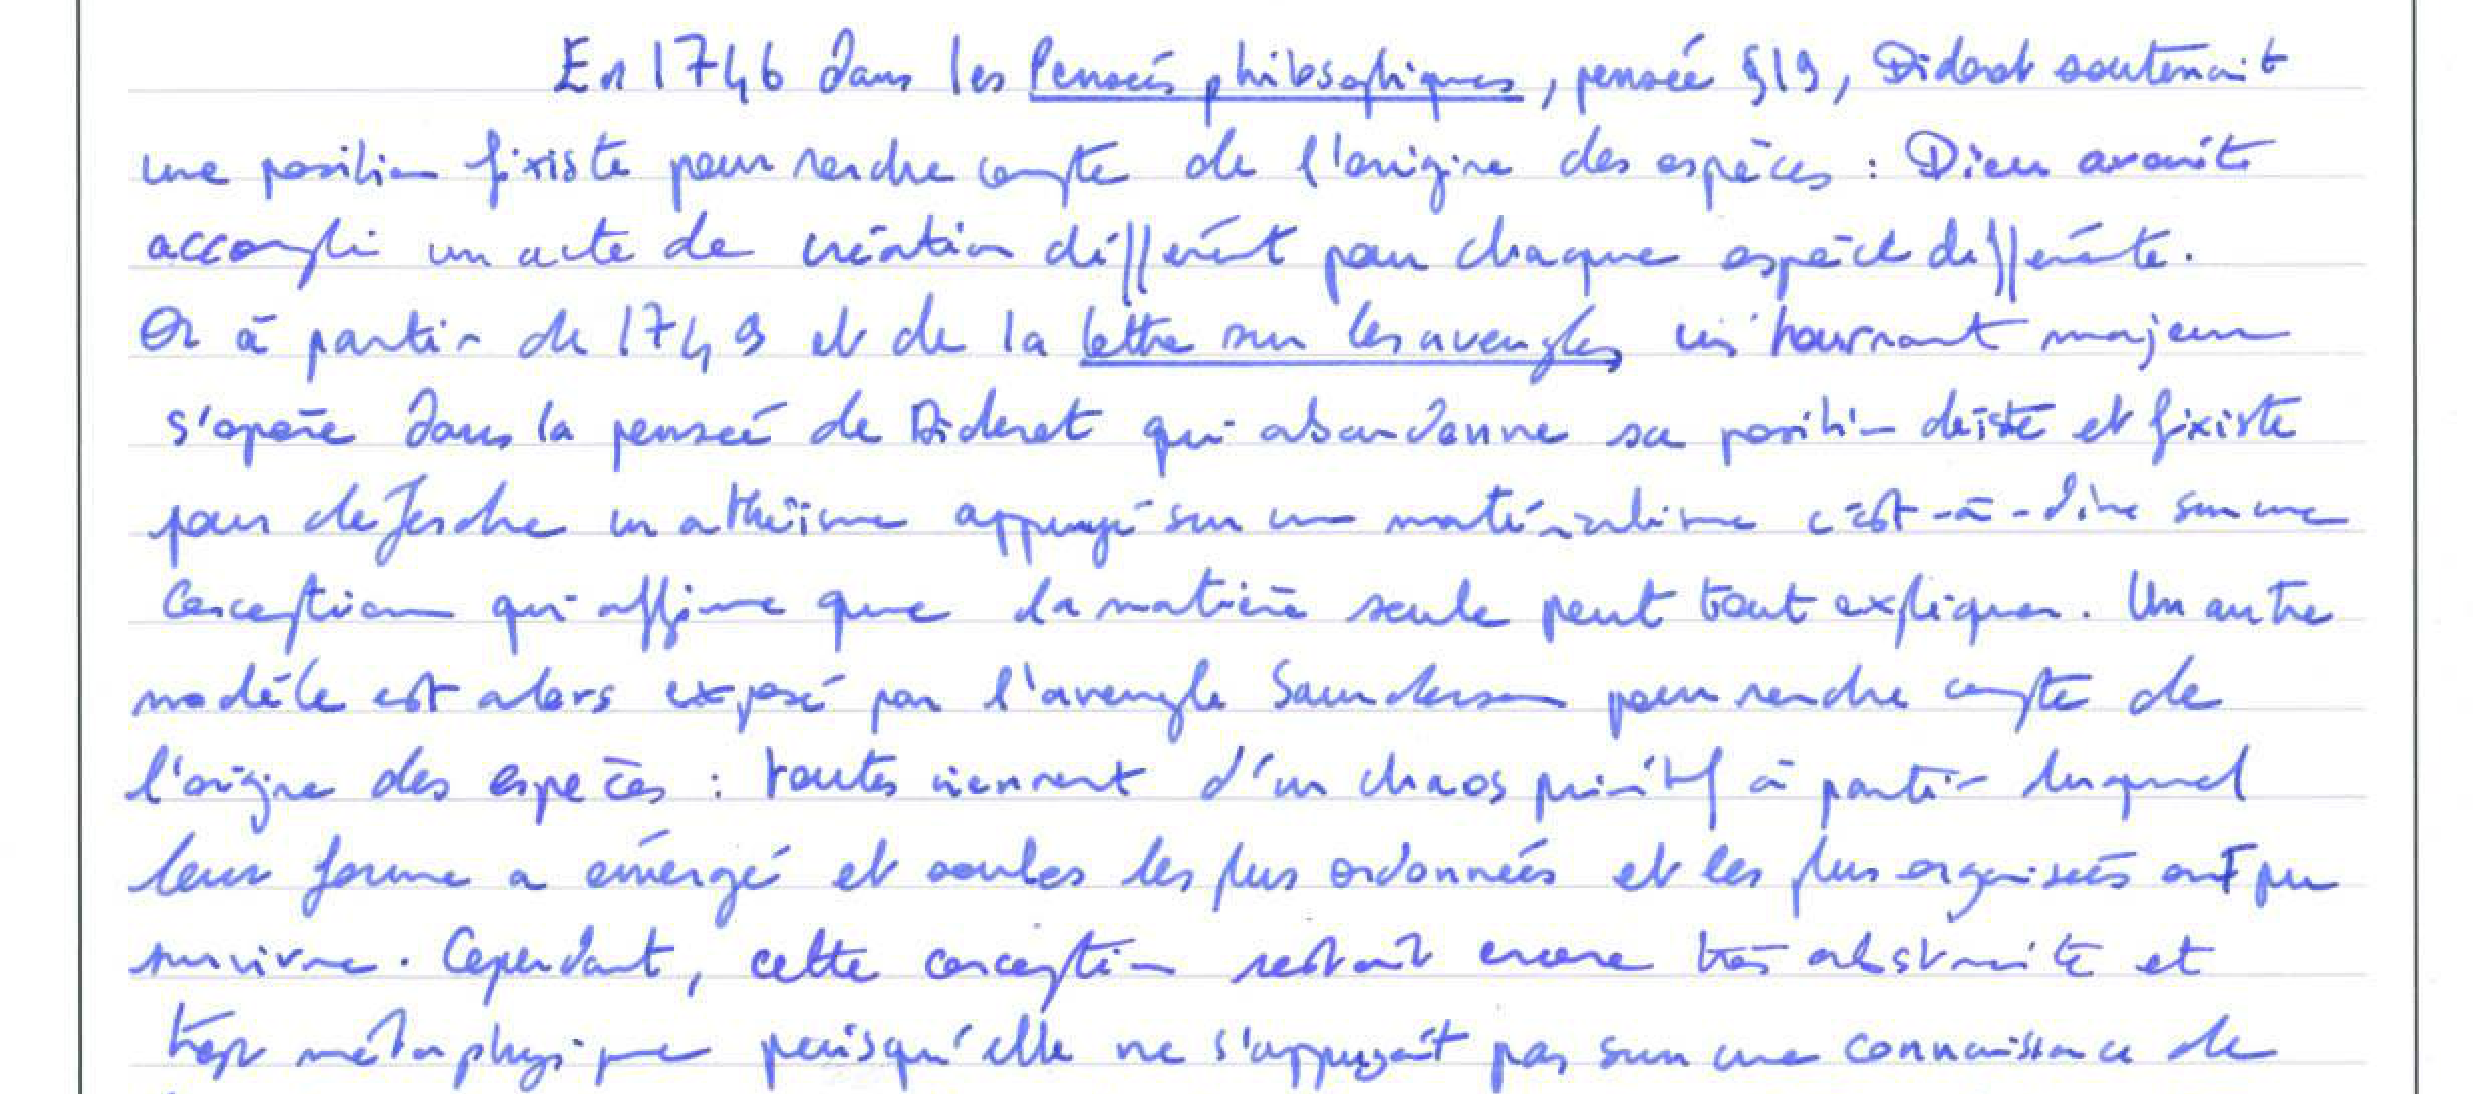 En 1746 dans les Pensées philosophiques, pensée §19, Diderot soutenait
une position fixiste pour rendre compte de l'origine des espèces : Dieu avait
accompli un acte de création différent pour chaque espèce différente.
Or à partir de 1749 et de la lettre sur les aveugles un tournant majeur
s'opère dans la pensée de Diderot qui abandonne sa position déiste et fixiste
pour défendre un athéisme appuyé sur un matérialisme c'est-à-dire sur une
conception qui affirme que la matière seule peut tout expliquer. Un autre
modèle est alors exposé par l'aveugle Saunderson pour rendre compte de
l'origine des espèces : toutes viennent d'un chaos primitif à partir duquel
leur forme a émergé et seules les plus ordonnées et les plus organisées ont pu
survivre. Cependant, cette conception restait encore très abstraite et
trop métaphysique puisqu'elle ne s'appuyait pas sur une connaissance de